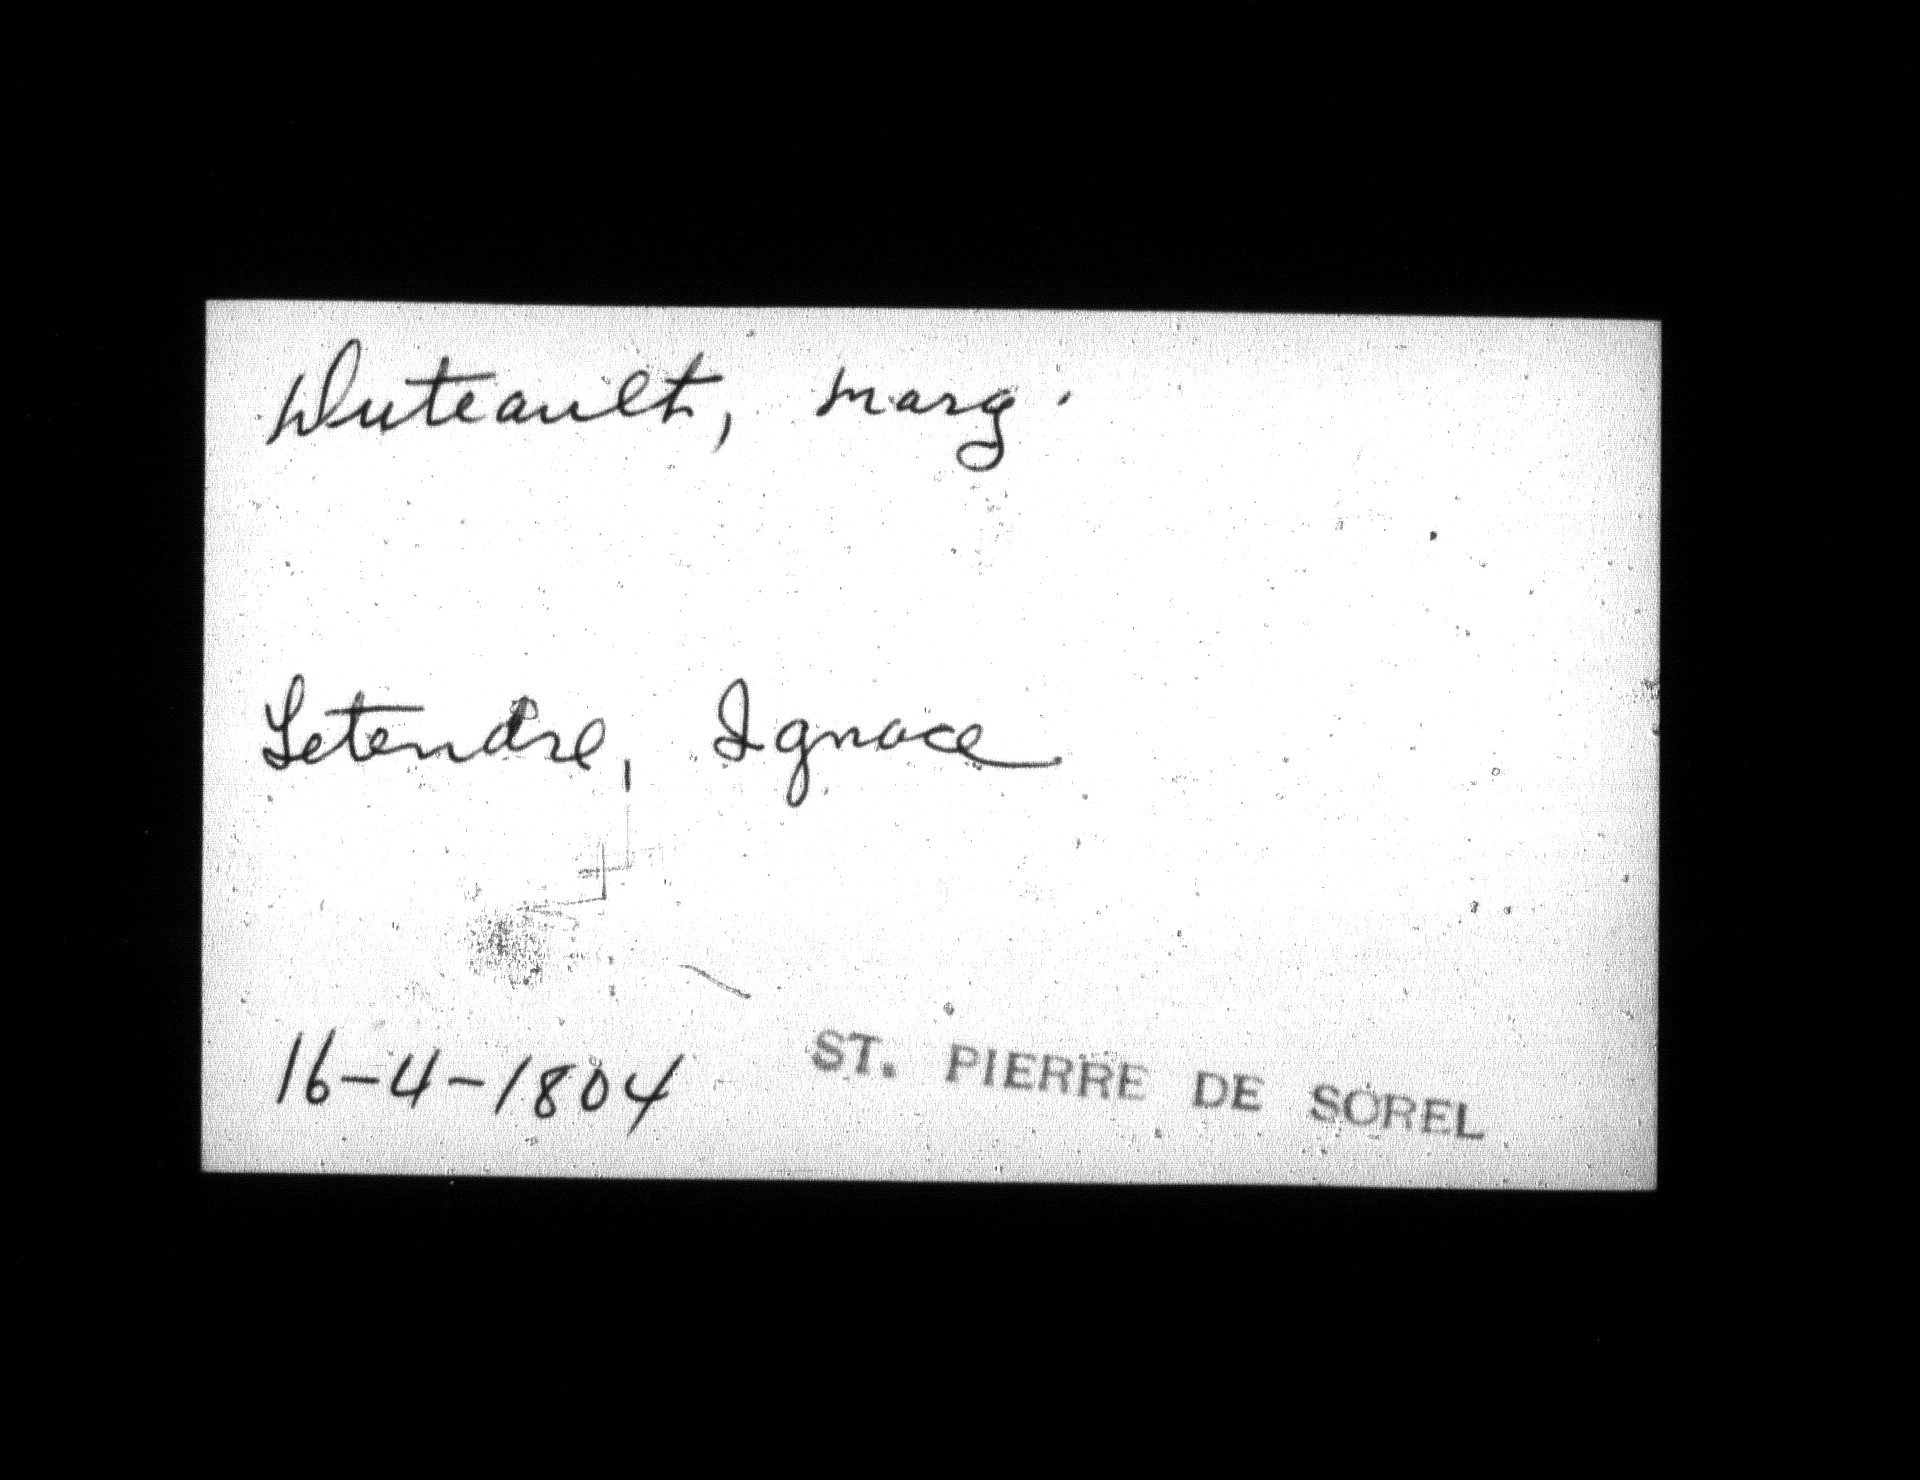 Duteault, Marg.
Letendre, Ignace
16-4-1804 ST. PIERRE DE SOREL